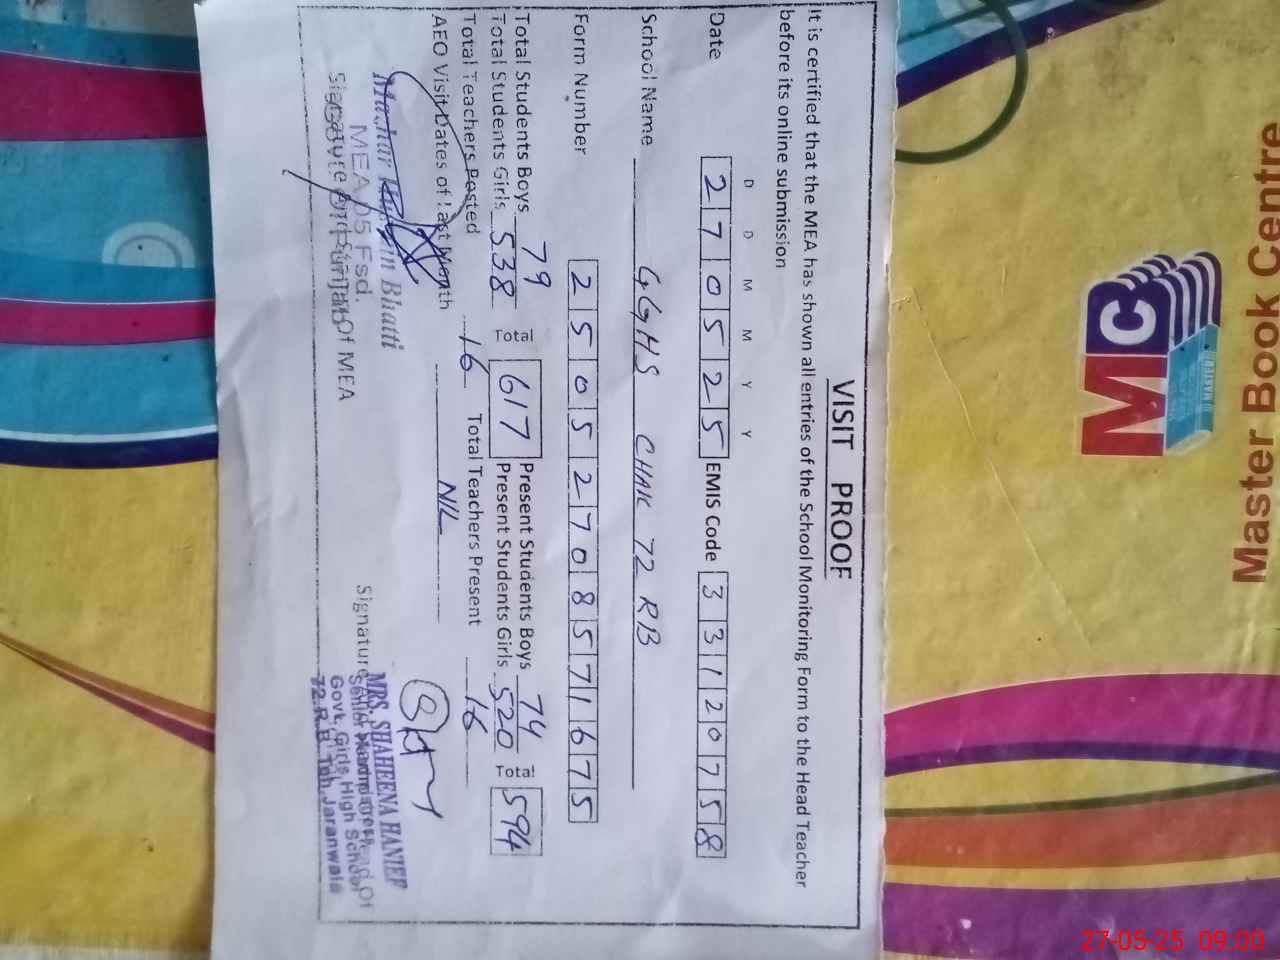 VISIT PROOF
It is certified that the MEA has shown all entries of the School Monitoring Form to the Head Teacher
before its online submission
D D M M Y Y
Date 270525 EMIS Code 33120758
School Name GGHS CHAK 72 RB
Form Number 25052708571675
Total Students Boys 79 Present Students Boys 74
Total Students Girls 538 Total 617 Present Students Girls 520 Total 594
Total Teachers Posted 16 Total Teachers Present 16
AEO Visit Dates of Last Month NIL
Bhatti
MEA 05 Fsd.
Signature And Of MEA
MRS. SHAHEENA HANIEF
Signature Of
Govt. Girls High School
72 R.B. Teh. Jaranwala
MC
Master Book Centre
27-05-25 09:00